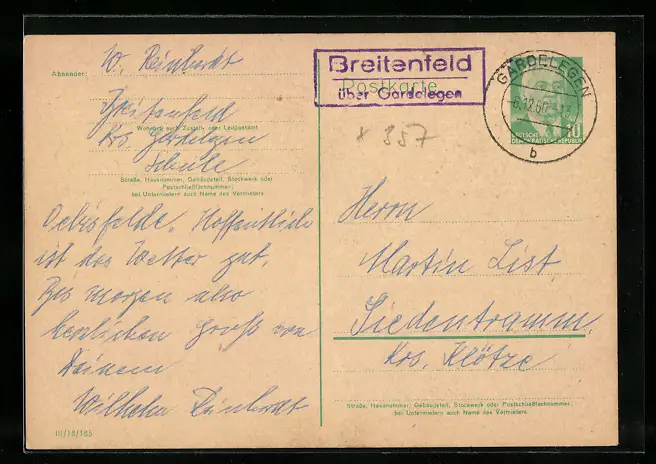 Absender: W. Reinhardt
Breitenfeld
Wohnort, auch Zustell- oder Leitpostamt
Krs. Gardelegen
Schule
Straße, Hausnummer, Gebäudeteil, Stockwerk oder
Postschließfachnummer;
bei Untermietern auch Name des Vermieters
Oebisfelde. Hoffentlich
ist das Wetter gut.
Bis morgen also
herzlichen Gruß von
Deinem
Wilhelm Reinhardt
III/18/185
Breitenfeld
über Gardelegen
Postkarte
GARDELEGEN
b
10
DEUTSCHE
DEMOKRATISCHE REPUBLIK
x 357
Herrn
Martin List
Siedentramm.
Krs. Klötze
Straße, Hausnummer, Gebäudeteil, Stockwerk oder Postschließfachnummer;
bei Untermietern auch Name des Vermieters